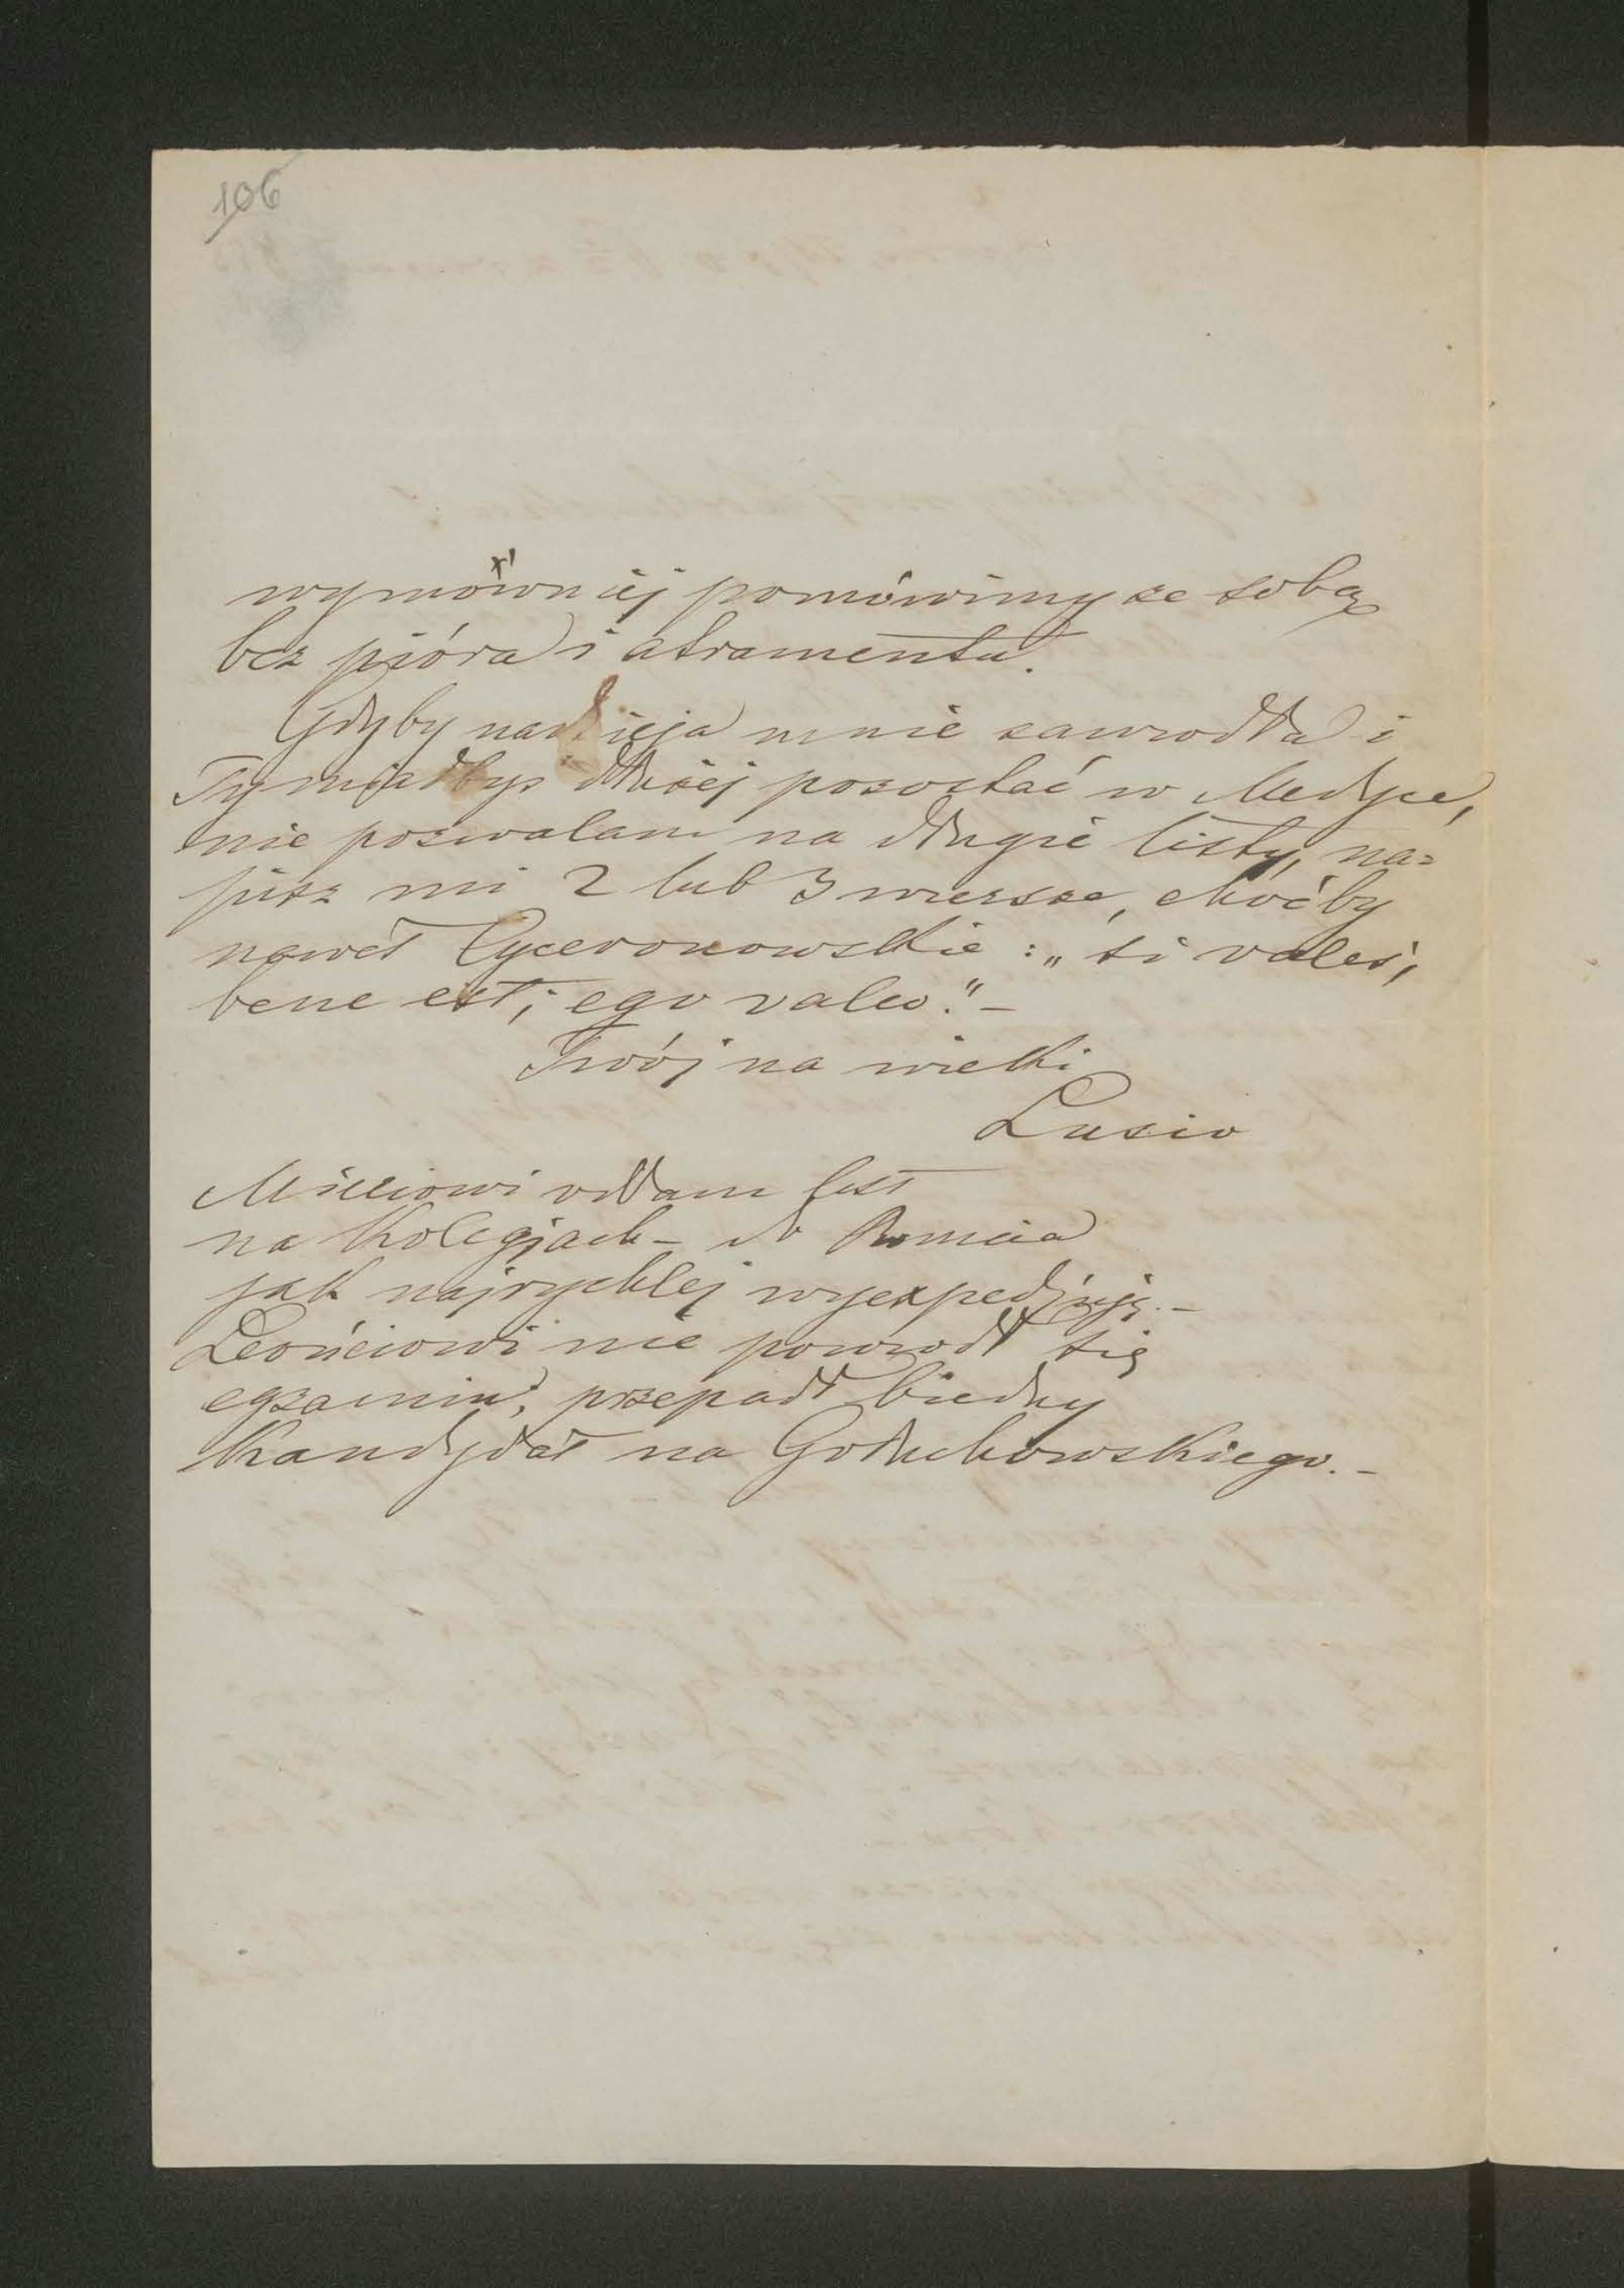 106
wymówniej pomówimy ze sobą
bez pióra i atramentu.
Gdyby nadzieja mnie zawiodła i
Ty miałbyś dłużej pozostać w Medyce,
nie pozwalam na długie listy, na=
pisz mi 2 lub 3 wiersze, choćby
nawet Cyceronowskie: „si vales,
bene est; ego valeo." –
Twój na wieki
Lusio
Mieciowi oddam list
na kolegjach – do Romcia
jak najrychlej wyexpedjuję. –
Leośiowi nie powiodł się
egzamin; przepadł biedny
Kandydat na Gołuchowskiego. –